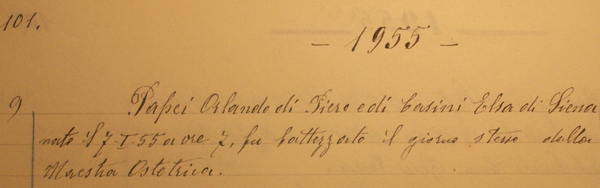 101.
- 1955 -
9 Papei Orlando di Piero e di Casini Elsa di Siena
nato il 7-I-55 a ore 7, fu battezzato il giorno stesso dalla
Maestra Ostetrica.